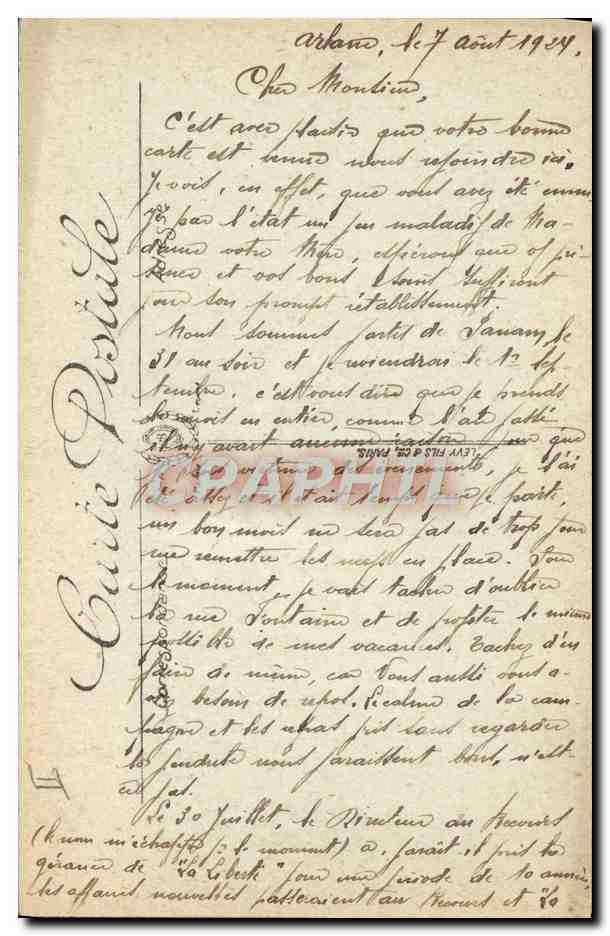 Arlanc, le 7 Août 1924.
Cher Monsieur,
C'est avec plaisir que votre bonne
carte est venue nous rejoindre ici.
Je vois, en effet, que vous avez été ennu-
yé par l'état un peu maladif de Ma-
dame votre Mère, espérons que
et vos bons soins suffiront
pour son prompt rétablissement.
Nous sommes partis de Panam le
31 au soir et je reviendrai le 1er Sep-
tembre. c'est vous dire que je prends
le mois en entier, comme l'an passé
il n'y avait aucune raison que
je sois victime des évènements, je l'ai
été assez et il était temps que je parte,
un bon mois ne sera pas de trop pour
me remettre les nerfs en place. Pour
le moment, je vais tacher d'oublier
la rue Fontaine et de profiter le mieux
possible de mes vacances. Tachez d'en
faire de même, car Vous aussi vous a-
vez besoin de repos. Le calme de la cam-
pagne et les repas pris sans regarder
la pendule nous paraissent bons, n'est-
ce pas.
Le 30 Juillet, le Directeur du Recours
(le nom m'échappe pr le moment) a, paraît-il pris la
gérance de "La Liberté" pour une période de 10 années,
les affaires nouvelles passeraient au Recours et "La
Carte Postale
ADRESSE
Correspondance
LEVY FILS & Cie, PARIS.
CPAPHIL
II